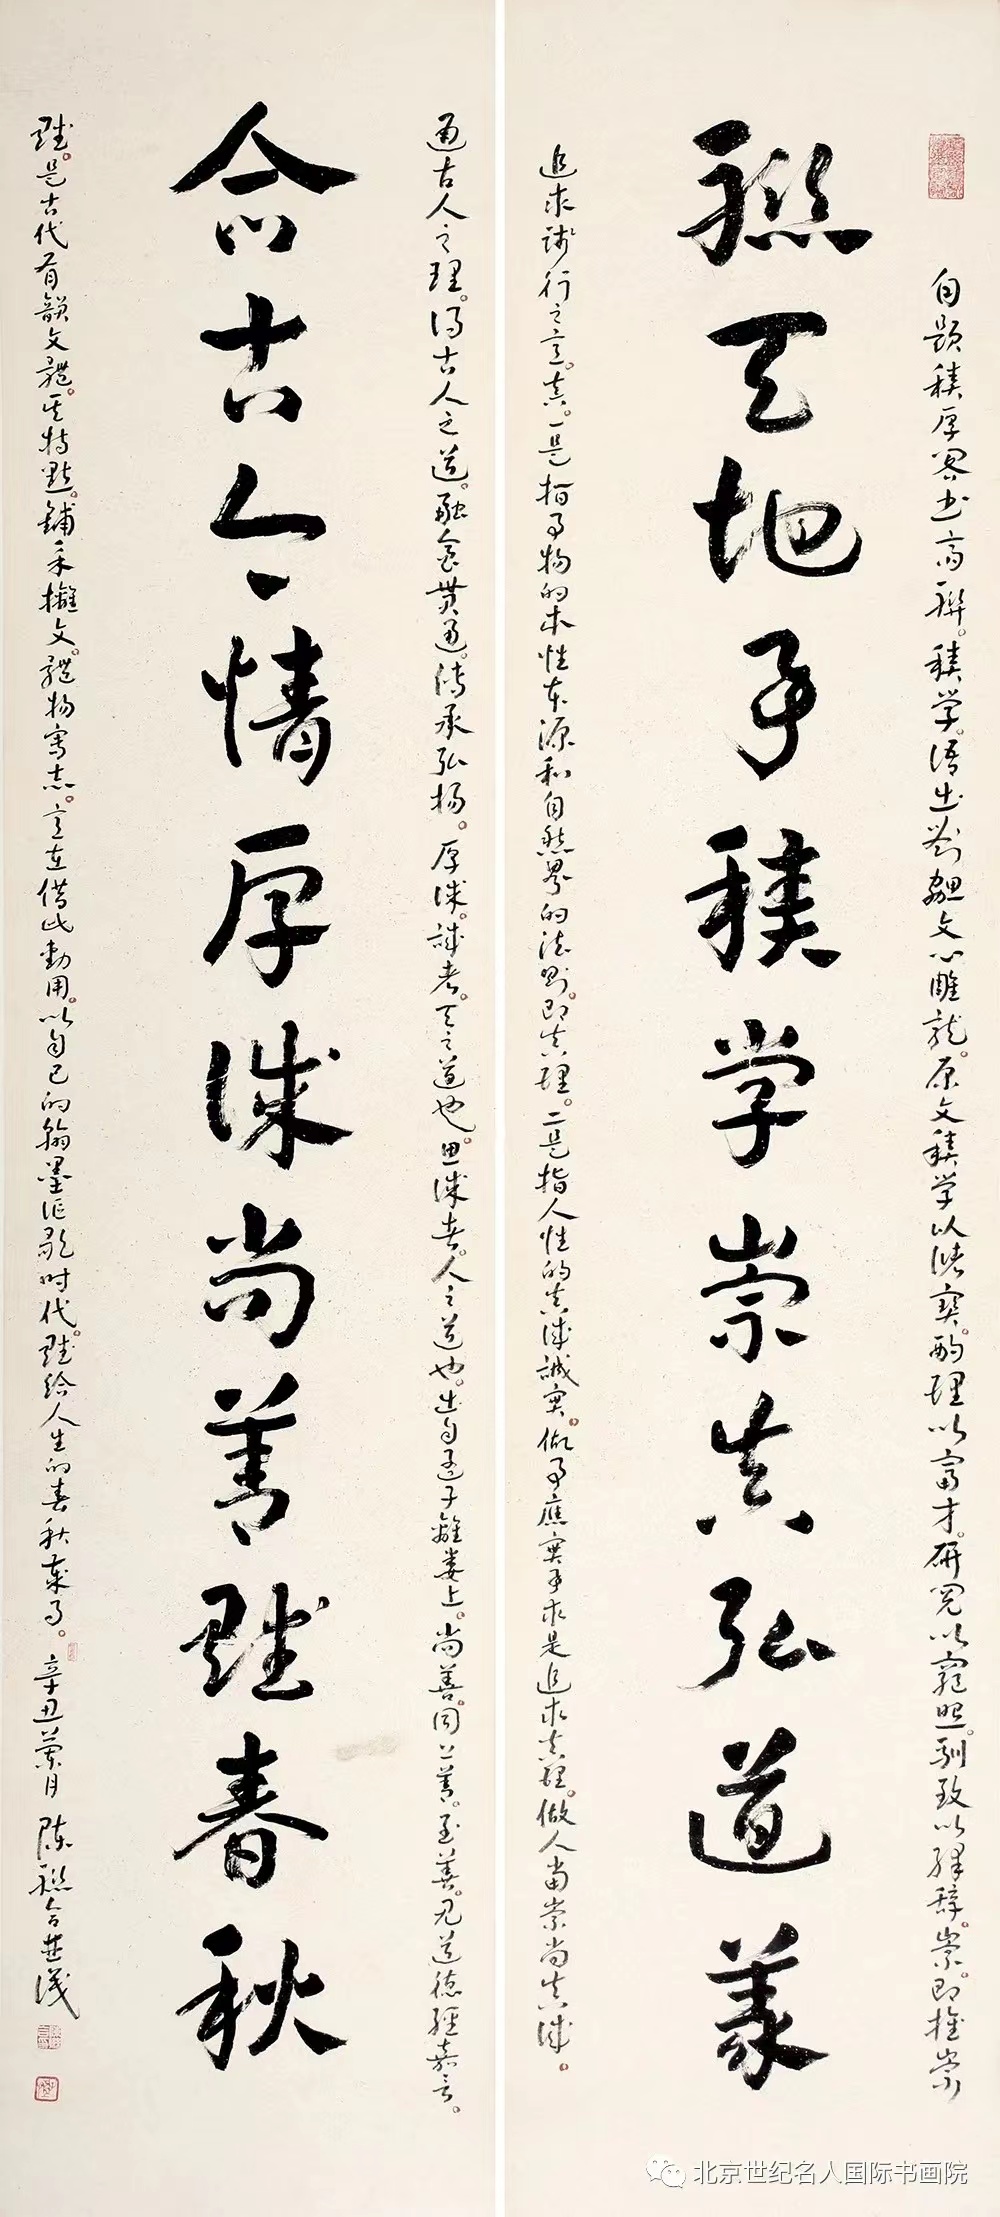 自题积厚署书斋联。积学。语出刘勰文心雕龙。原文积学以储宝。酌理以富才。研阅以穷照。驯致以绎辞。崇。即推崇
联天地手积学崇真弘道义
追求践行之意。真。一是指事物的本性本源和自然界的法则。即真理。二是指人性的真诚诚实。做事应实事求是追求真理。做人当崇尚真诚。
通古人之理。得古人之道。融会贯通。传承弘扬。厚诚。诚者。天之道也。思诚者。人之道也。出自孟子离娄上。尚善。同上善。至善。见道德经嘉言。
合古今情厚诚尚善赋春秋
赋。是古代有韵文体。其特点。铺采摛文。体物写志。意在借此动用。以自己的翰墨讴歌时代。赋给人生的春秋故事。
辛丑兰月 陈联合并识
北京世纪名人国际书画院